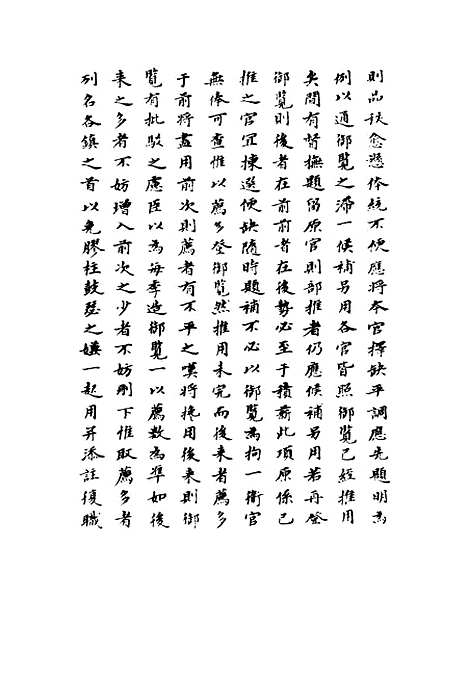 則品秩愈懸俸統不便應將本官擇缺平調應先題明為
例以通御覽之滯一候補另用各官皆照御覽已經推用
矣間有督撫題留原官則部推者仍應候補另用若再登
御覽則後者在前前者在後勢必至于積薪此項原係已
推之官宜揀選便缺隨時題補不必以御覽為拘一衛官
無俸可查惟以薦多登御覽然推用未完而後來者薦多
于前將盡用前次則薦者有不平之嘆將挽用後來則御
覽有批駁之處臣以為每季造御覽一以薦數為準如後
來之多者不妨增入前次之少者不妨刪下惟取薦多者
列名各鎮之首以免膠柱鼓瑟之嫌一起用并添註復職